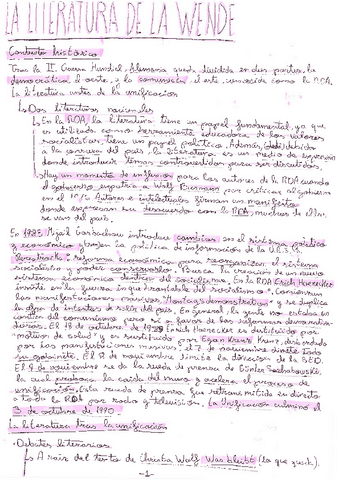 LA LITERATURA DE LA WENDE
Contexto histórico
Tras la II. Guerra Mundial, Alemania queda dividida en dos partes, la
democrática al oeste, y la comunista, al este, conocida como la RDA.
La literatura antes de la unificación
↳ Dos literaturas nacionales
↳ En la RDA, la literatura tiene un papel fundamental, ya que
es utilizada como herramienta educadora de los valores
socialistas, tiene un papel político. Además, debido
a la censura del país, la literatura es un medio de expresión
donde introducir temas controvertidos para ser discutidos.
↳ Hay un momento de inflexión para los autores de la RDA cuando
el gobierno expatria a Wolf Biermann por criticar al gobierno
en el 1976. Autores e intelectuales firman un manifiesto
donde expresan su desacuerdo con la RDA, muchos de ellos
se van del país.
En 1985 Mijail Gorbachov introduce cambios en el sistema político
y económico
Perestroika: reforma económica para reorganizar el sistema
socialista y poder conservarlo. Busca la creación de un nuevo
sistema económico dentro del socialismo. En la RDA Erich Honecker
las manifestaciones masivas "Montagsdemonstration" y se duplica
la de intentos de salir del país. En general, la gente no estaba en
contra del comunismo, pero a favor de las reformas democráticas
El 18 de octubre de 1989 Erich Honecker es destituido por
"motivos de salud" y es sustituido por Egon Krenz, debido
por las manifestaciones masivas, el 7 de noviembre dimite todo
su gabinete. El 8 de noviembre dimite la dirección de la SED.
El 9 de noviembre se da la rueda de prensa de Günter Schabowski,
la cual produce la caída del muro y acelera el proceso de
unificación. Esta rueda de prensa fue retransmitida en directo
a toda la RDA por radio y televisión. La unificación culmina el
3 de octubre de 1990.
La literatura tras la unificación
· Debates literarios
↳ A raíz del texto de Christa Wolf Was bleibt (lo que queda).
-1-